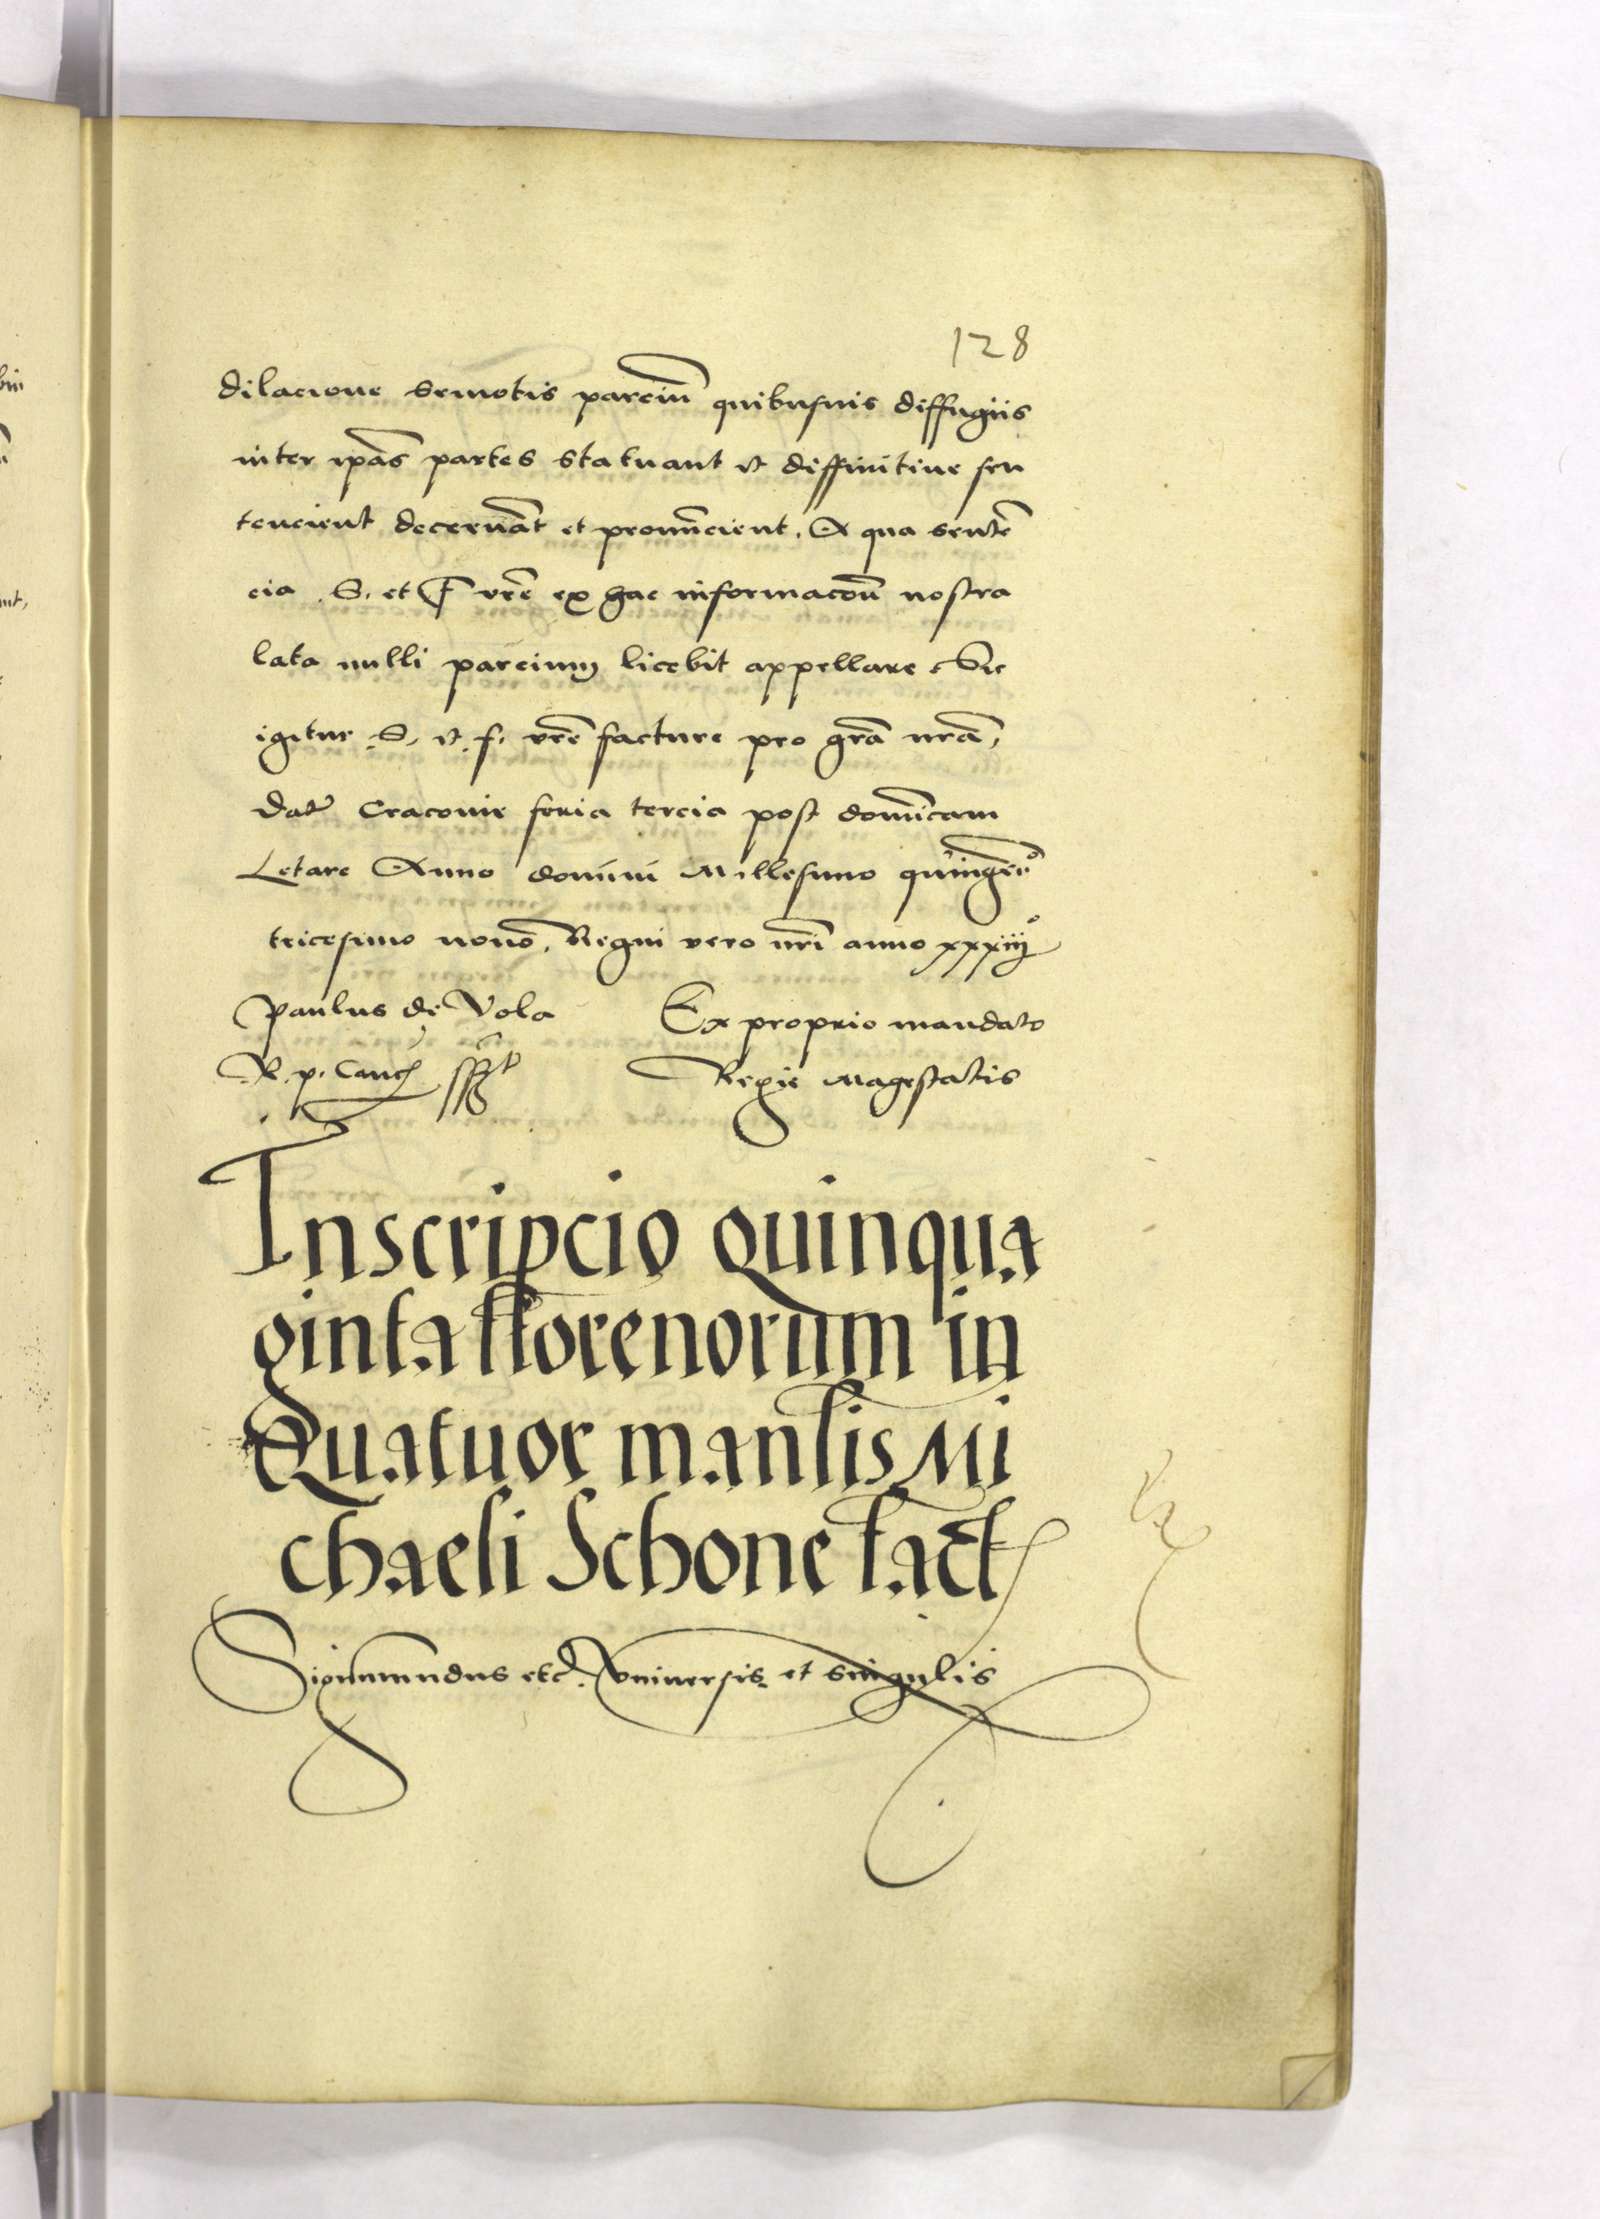 128
dilacione semotis parciũ quibusuis diffugiis
inter ipãs partes statuant et diffinitiue sen
tencient decernãt et pronũcient. A qua sentẽ
cia S. et F vrẽ ex hac informacoũ nostra
lata nulli parcium licebit appellare Sic
igitur S. et f. vrẽ facture pro grã nrã,
Dat Cracovie feria tercia post domĩcam
Letare Anno domini Millesimo quingẽ°
tricesimo nono, Regni vero nrĩ anno xxxiij°
Paulus de Vola Ex proprio mandato
R. p. Canc̃ sst Regie Magestatis
Inscripcio quinqua
ginta florenorum in
Quatuor mansis Mi
chaeli Schone fact
Sigismundus etc. Vniversis et singulis